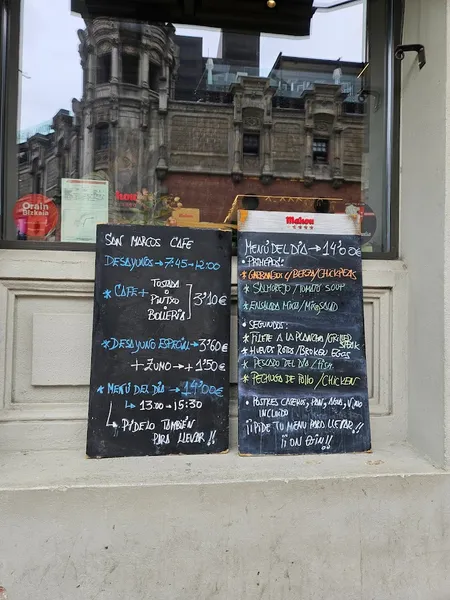 Orain
Bizkaia
SAN MARCOS CAFE
DESAYUNOS → 7:45 → 12:00
* CAFE +
TOSTADA
O
PINTXO
O
BOLLERIA
3'10€
* DESAYUNO ESPECIAL → 3'60€
+ ZUMO → + 1'50€
* MENÚ DEL DIA → 14'00€
↳ 13:00 → 15:30
↳ PIDELO TAMBIÉN
PARA LLEVAR!!
Mahou
MENÚ DEL DIA → 14'00€
• PRIMEROS:
* GARBANZOS C/BERZA/CHICKPEAS
* SALMOREJO/TOMATO SOUP
* ENSALADA MIXTA/MIXED SALAD
• SEGUNDOS:
* FILETE A LA PLANCHA/GRILLED
STEAK
* HUEVOS ROTOS/BROKEN EGGS
* PESCADO DEL DÍA/FISH
* PECHUGA DE POLLO/CHICKEN
• POSTRES CASEROS, PAN, AGUA, VINO
INCLUIDO
¡¡PIDE TU MENU PARA LLEVAR!!
¡¡ON EGIN!!